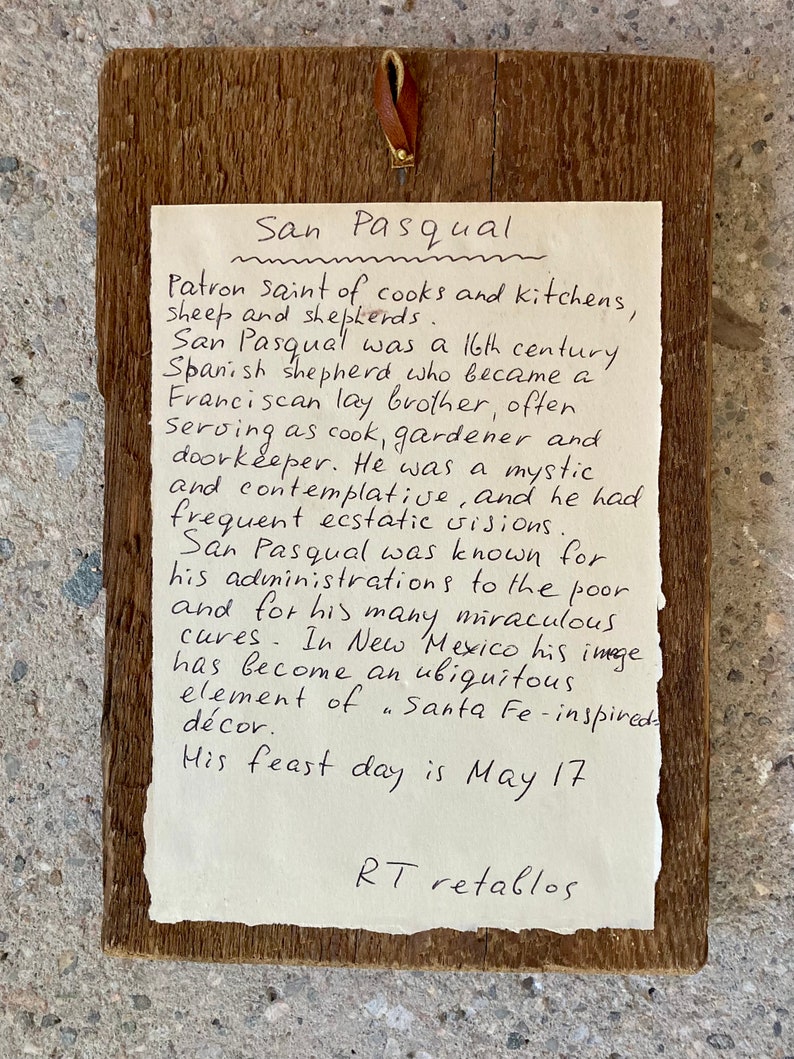 San Pasqual
Patron saint of cooks and kitchens,
sheep and shepherds.
San Pasqual was a 16th century
Spanish shepherd who became a
Franciscan lay brother, often
serving as cook, gardener and
doorkeeper. He was a mystic
and contemplative, and he had
frequent ecstatic visions.
San Pasqual was known for
his administrations to the poor
and for his many miraculous
cures. In New Mexico his image
has become an ubiquitous
element of „Santa Fe-inspired"
décor.
His feast day is May 17
RT retablos